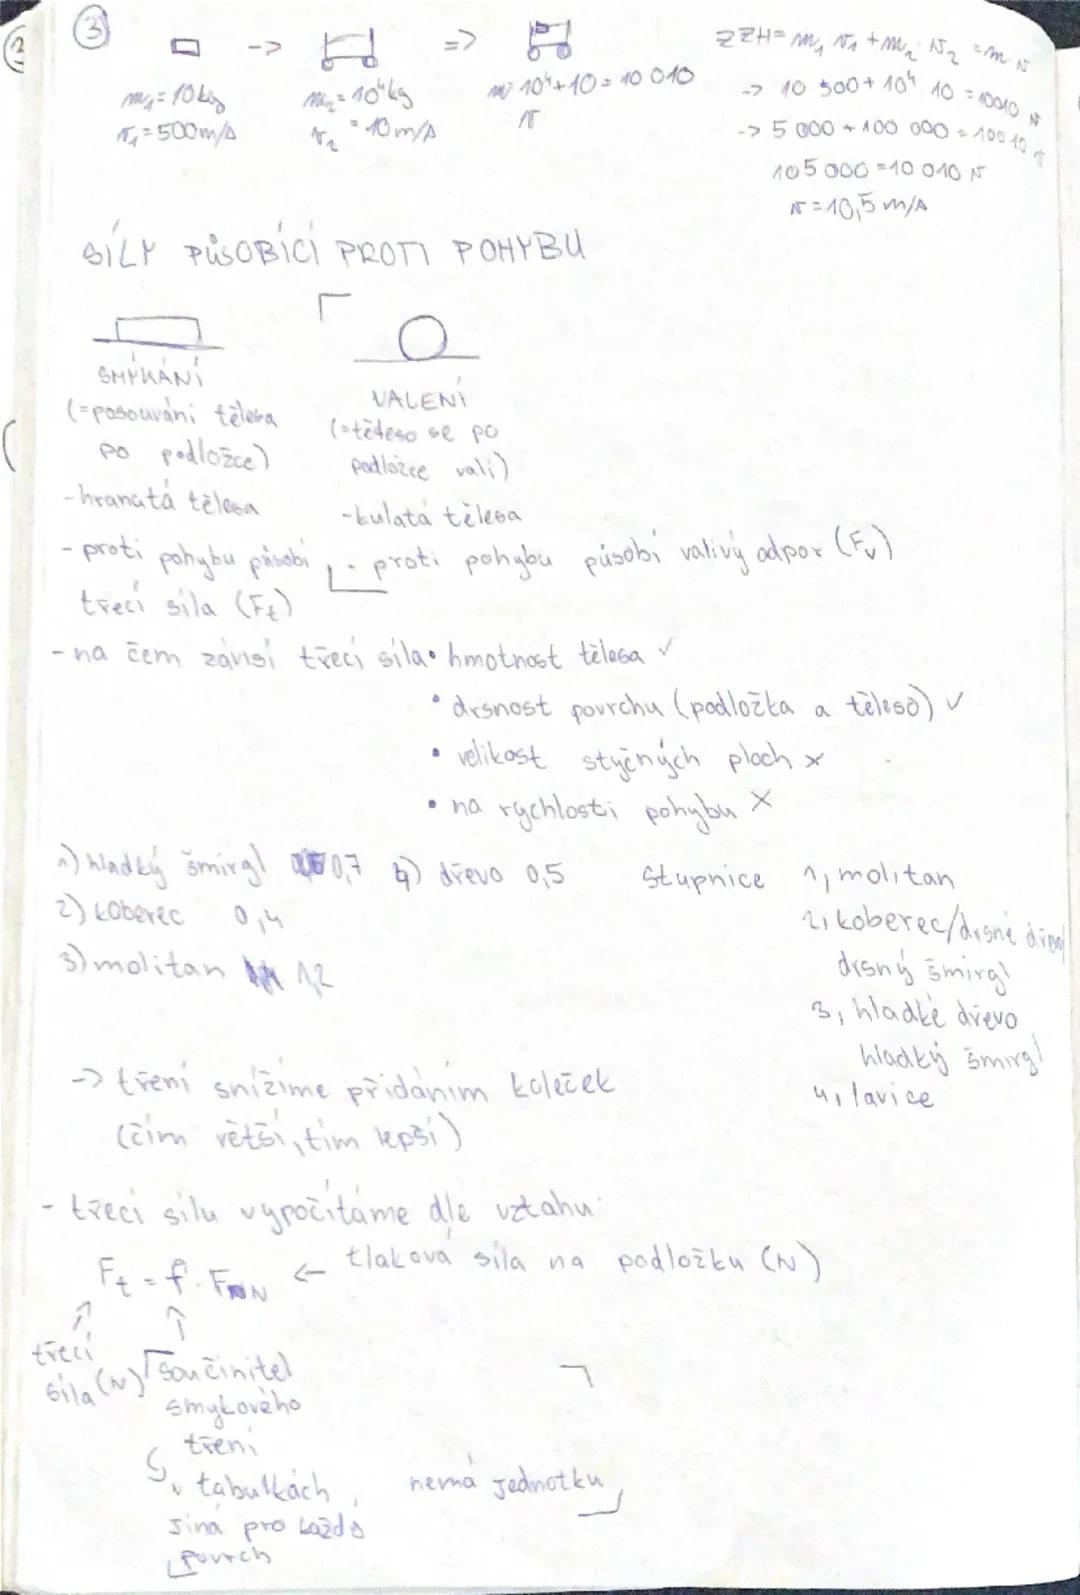 ③ -> =>
m₁=10kg m₂=10⁴kg m 10⁴+10=10 010
v₁=500m/s v₂=10m/s v
ZZH= m₁ v₁ + m₂ v₂ = m v
-> 10 500 + 10⁴ 10 = 10010 v
-> 5 000 + 100 000 = 100 10 v
105 000 = 10 010 v
v = 10,5 m/s
SÍLY PŮSOBÍCÍ PROTI POHYBU
SMÝKÁNÍ
(=posouvání tělesa
po podložce)
-hranatá tělesa
- proti pohybu působí
třecí síla (Ft)
VALENÍ
(=těleso se po
podložce valí)
-kulatá tělesa
- proti pohybu působí valivý odpor (Fv)
- na čem závisí třecí síla • hmotnost tělesa ✓
• drsnost povrchu (podložka a těleso) ✓
• velikost styčných ploch x
• na rychlosti pohybu X
1) hladký šmirgl 0,7 4) dřevo 0,5
2) koberec 0,4
3) molitan 1,2
Stupnice 1, molitan
2, koberec/drsné dřevo
drsný šmirgl
3, hladké dřevo
hladký šmirgl
4, lavice
-> tření snížíme přidáním koleček
(čím větší, tím lepší)
- třecí sílu vypočítáme dle vztahu:
Ft = f · FN ← tlaková síla na podložku (N)
třecí
síla (N)
součinitel
smykového
tření
v tabulkách, nemá jednotku
jiná pro každý
povrch